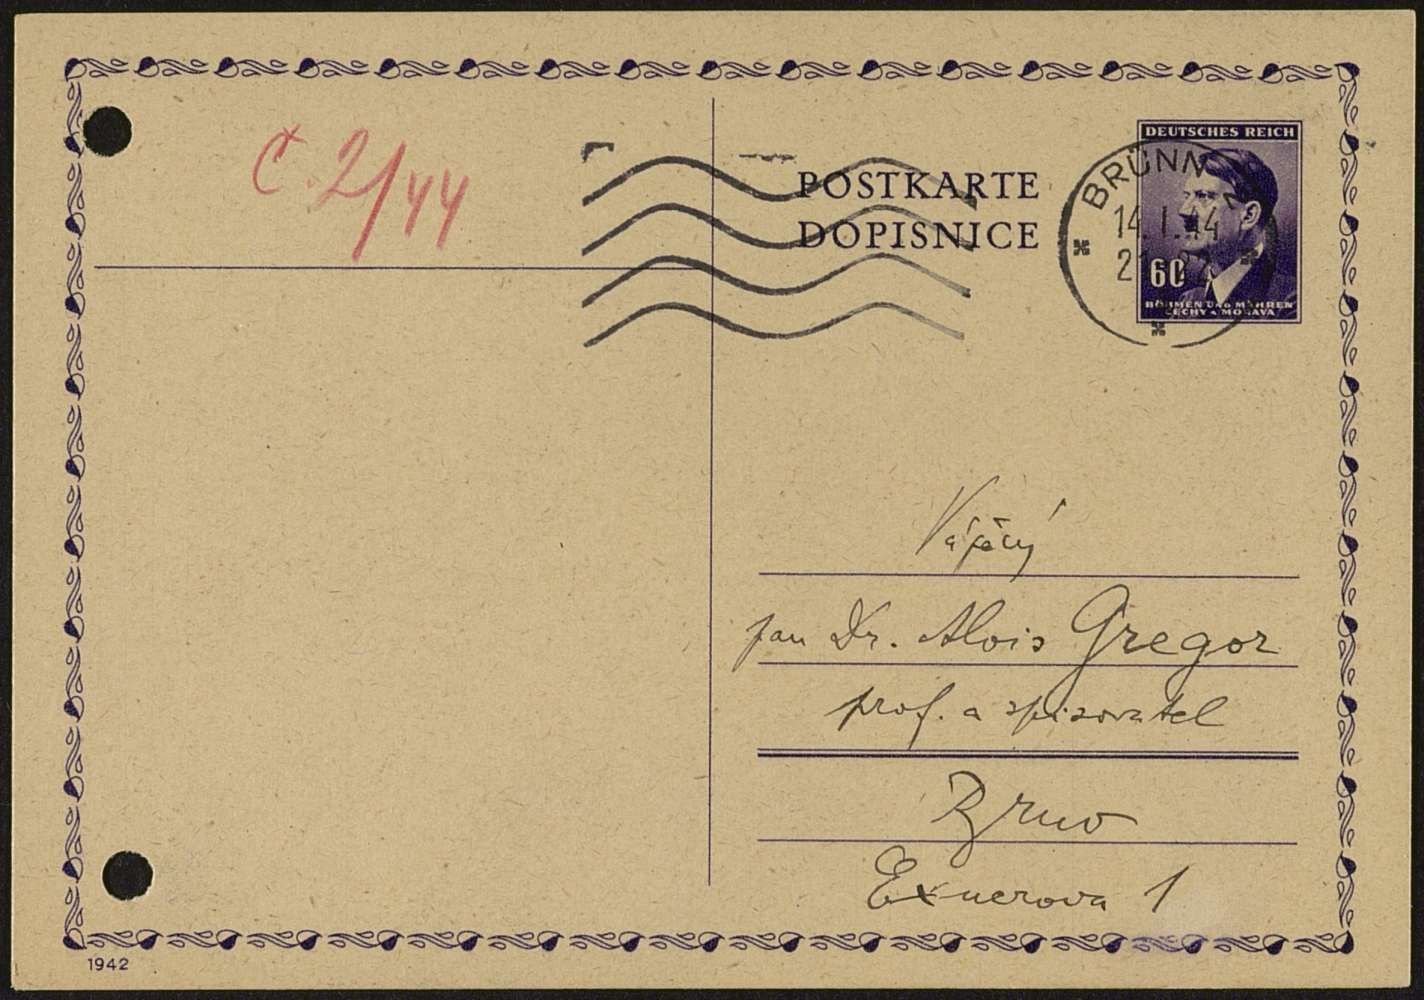 Č. 2/44
POSTKARTE
DOPISNICE
DEUTSCHES REICH
BRÜNN 2
14.I.44
60
BÖHMEN UND MÄHREN
ČECHY A MORAVA
Vážený
pan Dr. Alois Gregor
prof. a spisovatel
Brno
Exnerova 1
1942